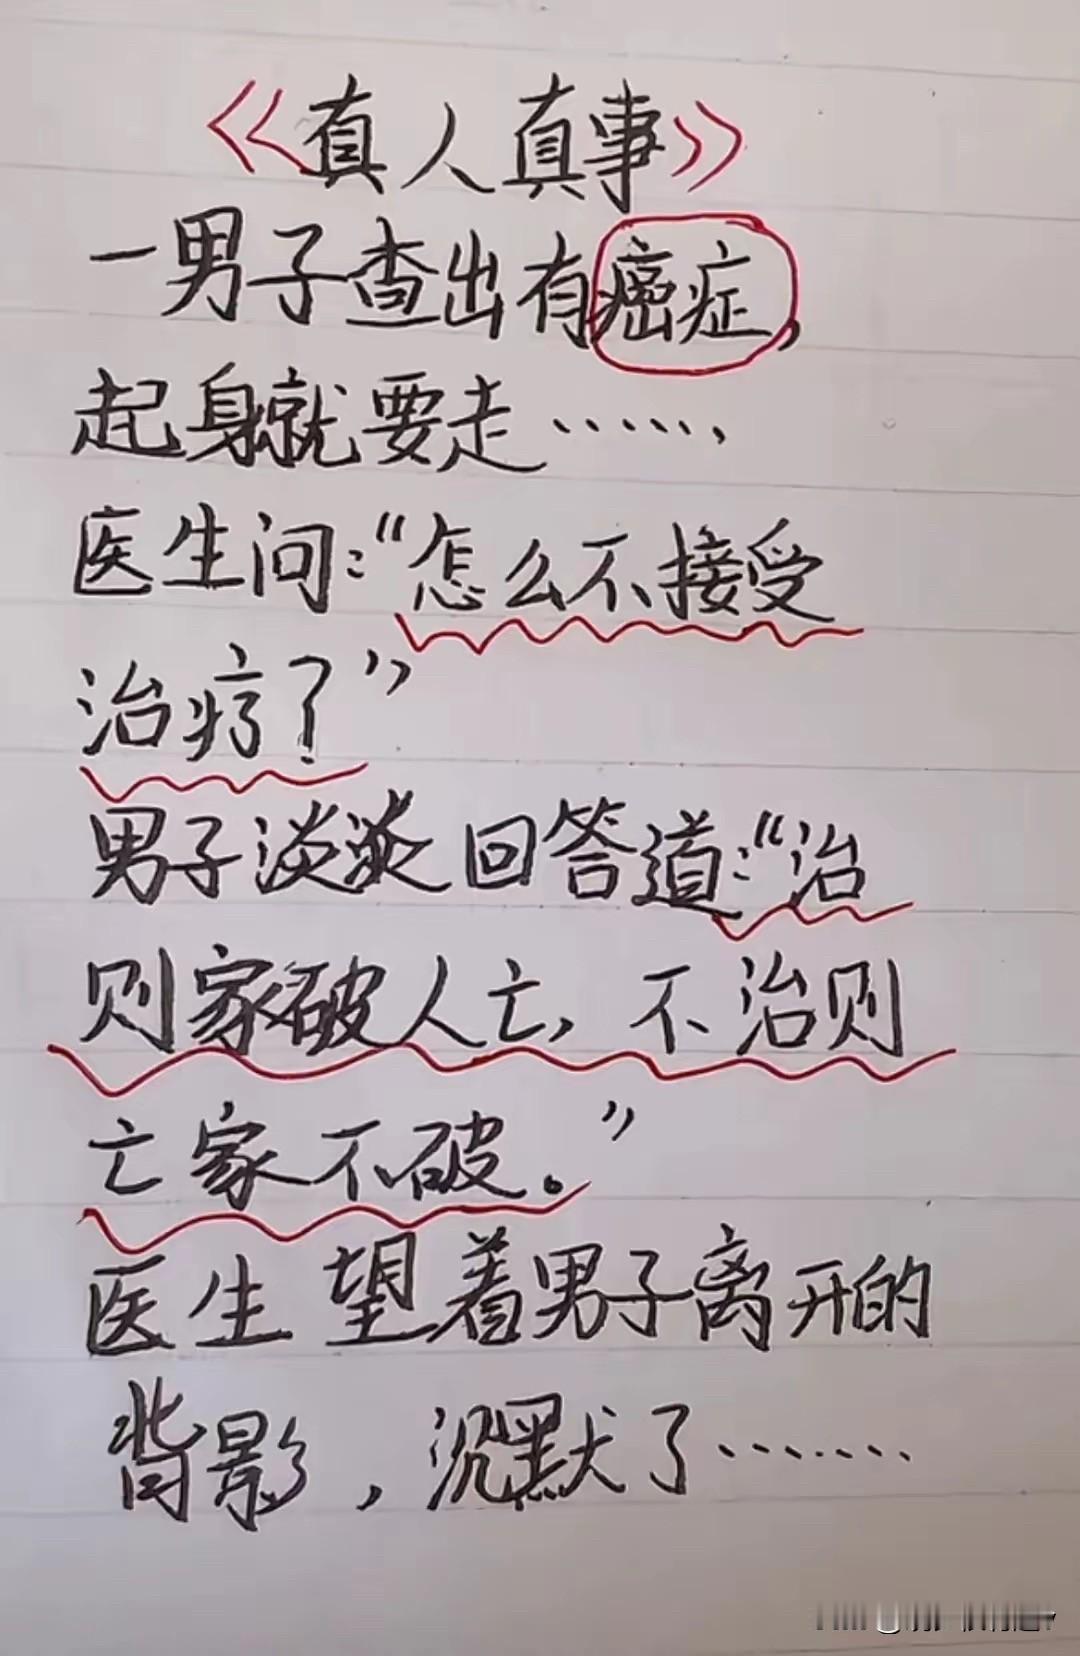 《真人真事》
一男子查出有癌症,
起身就要走……,
医生问:“怎么不接受
治疗?”
男子淡淡回答道:“治
则家破人亡,不治则
亡家不破。”
医生望着男子离开的
背影,沉默了……